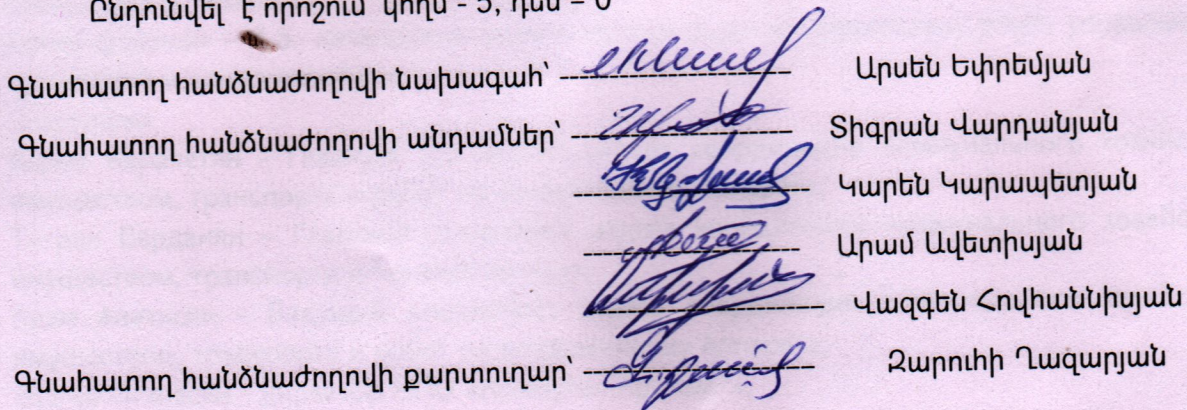 Ընդունվել է որոշում կողմ - 5, դեմ – 0
Գնահատող հանձնաժողովի նախագահ՝ Արսեն Եփրեմյան
Գնահատող հանձնաժողովի անդամներ՝ Տիգրան Վարդանյան
Կարեն Կարապետյան
Արամ Ավետիսյան
Վազգեն Հովհաննիսյան
Գնահատող հանձնաժողովի քարտուղար՝ Զարուհի Ղազարյան